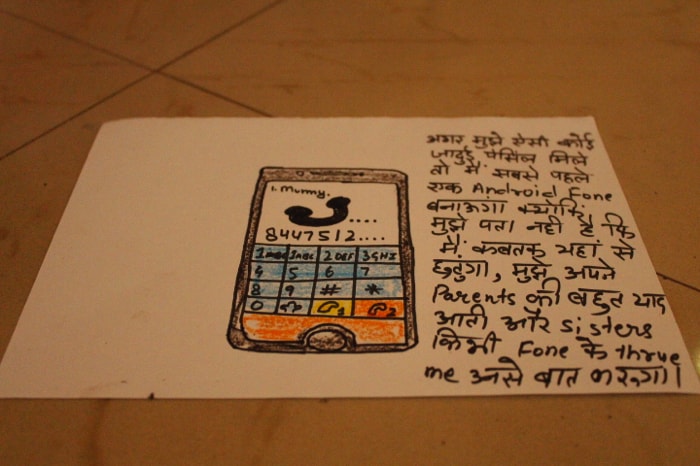 1. Mummy.
....
8447512....
1 ABC 2 DEF 3 GHI
4 5 6 7
8 9 # *
0 1 2
अगर मुझे ऐसी कोई
जादुई पेंसिल मिले
तो मैं सबसे पहले
एक Android Fone
बनाऊंगा क्योंकि
मुझे पता नही है कि
मैं कबतक यहां से
छुटुगा, मुझे अपने
Parents की बहुत याद
आती और sisters
कि भी Fone के throue
me उनसे बात करूगा।